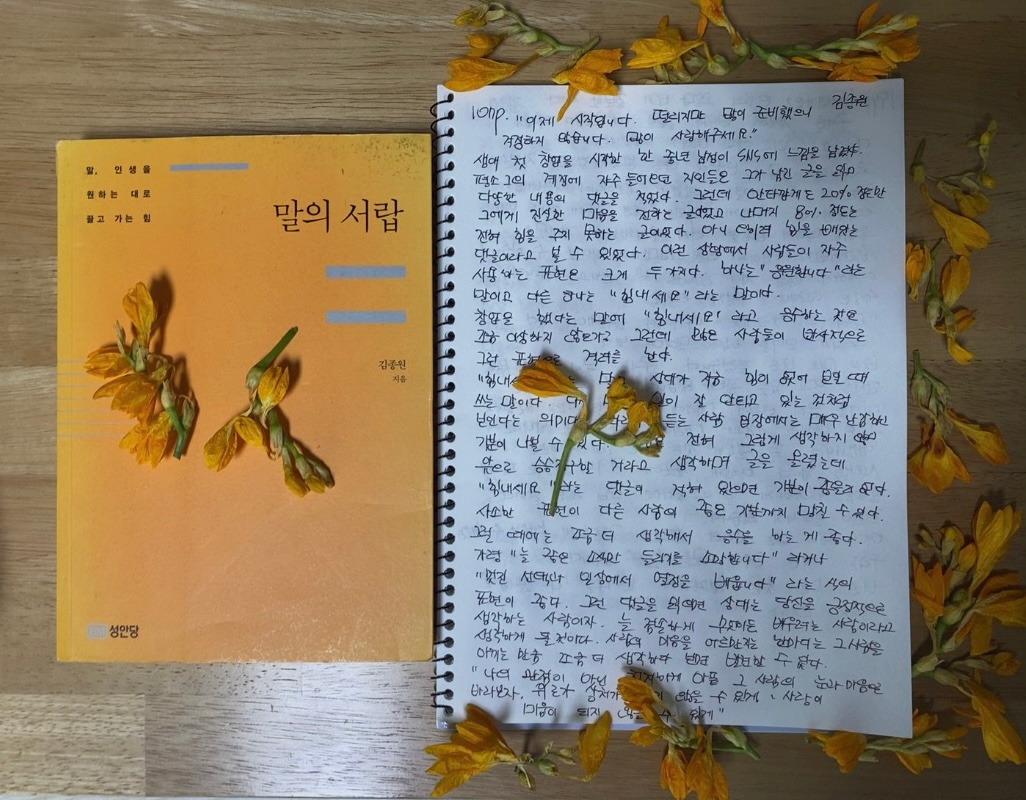 말, 인생을
원하는 대로
끌고 가는 힘
말의 서랍
김종원
지음
성안당
김종원
10np. "이제 시작입니다. 떨리지만 많이 준비했으니
걱정하지 않습니다. 많이 사랑해주세요."
생애 첫 창업을 시작한 한 중년 남성이 SNS에 느낌을 남겼다.
평소 그의 계정에 자주 들어오던 지인들은 그가 남긴 글을 읽고
다양한 내용의 댓글을 적었다. 그런데 안타깝게도 20% 정도만
그에게 진실한 마음을 전하는 글이었고 나머지 80% 정도는
전혀 힘을 주지 못하는 글이었다. 아니 오히려 힘을 빼앗는
댓글이라고 볼 수 있었다. 이런 상황에서 사람들이 자주
사용하는 표현은 크게 두 가지다. 하나는 "응원합니다"라는
말이고 다른 하나는 "힘내세요"라는 말이다.
창업을 했다는 말에 "힘내세요"라고 응수하는 것은
조금 이상하지 않은가? 그런데 많은 사람들이 반사적으로
그런 표현으로 격려를 한다.
"힘내세 는 말 상대가 가끔 힘이 없어 보일 때
쓰는 말이다. 일이 잘 안되고 있는 것처럼
보인다는 의미다 듣는 사람 입장에서는 매우 난감하고
기분이 나쁠 수 있다. 전혀 그렇게 생각하지 않고
앞으로 승승장구할 거라고 생각하며 글을 올렸는데
"힘내세요"라는 댓글이 적혀 있으면 기분이 좋을리 없다.
사소한 표현이 다른 사람의 좋은 기분까지 망칠 수 있다.
그런 때에는 조금 더 생각해서 응수를 하는 게 좋다.
가령 "늘 좋은 소식만 들리기를 소망합니다" 라거나
"멋진 선택과 일상에서 열정을 배웁니다" 라는 식의
표현이 좋다. 그런 댓글을 읽으면 상대는 당신을 긍정적으로
생각하는 사람이자, 늘 겸손하게 무엇이든 배우려는 사람이라고
생각하게 될 것이다. 사람의 마음을 어루만지는 한마디는 그 사람을
아끼는 만큼 조금 더 생각하면 발견할 수 있다.
"나의 관점이 아닌 아픔 그 사람의 눈과 마음으로
바라보자, 위로가 상처가 않을 수 있게, 사랑이
미움이 되지 않을 수 있게"